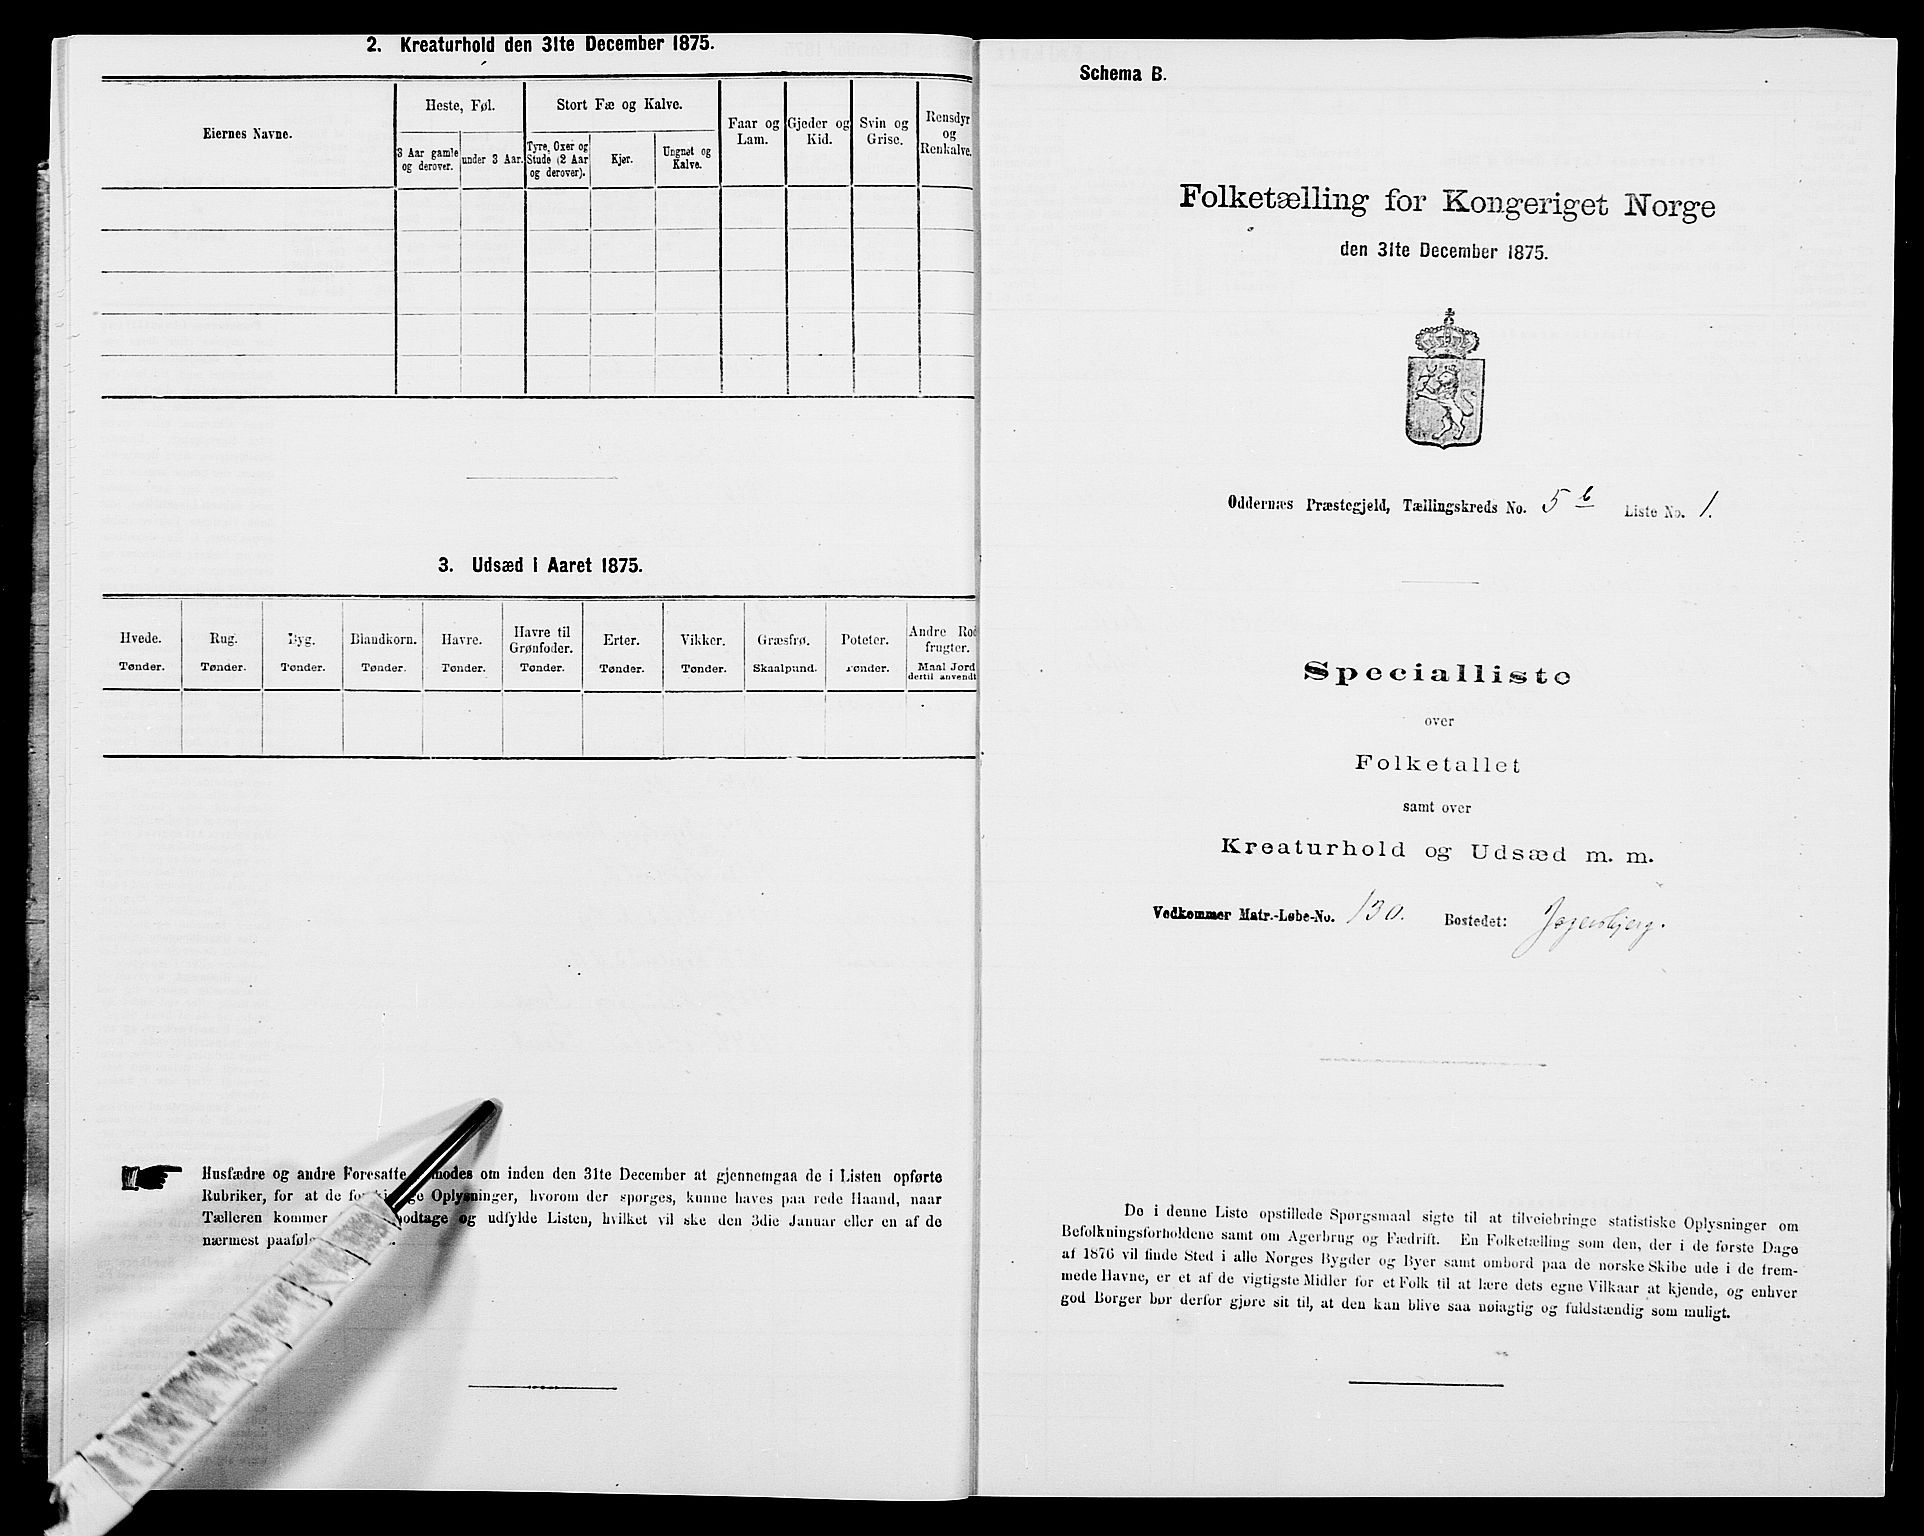 2. Kreaturhold den 31te December 1875.
Eiernes Navne.
Heste, Føl.
Stort Fæ og Kalve.
Faar og Lam.
Gjeder og Kid.
Svin og Grise.
Rensdyr og Renkalve.
3 Aar gamle og derover.
under 3 Aar.
Tyre, Oxer og Stude (2 Aar og derover).
Kjør.
Ungnøt og Kalve.
3. Udsæd i Aaret 1875.
Hvede.
Tønder.
Rug.
Tønder.
Byg.
Tønder.
Blandkorn.
Tønder.
Havre.
Tønder.
Havre til Grønfoder.
Tønder.
Erter.
Tønder.
Vikker.
Tønder.
Græsfrø.
Skaalpund.
Poteter.
Tønder.
Andre Rod
frugter.
Maal Jord
dertil anvendt
Husfædre og andre Foresatte modes om inden den 31te December at gjennemgaa de i Listen opførte
Rubriker, for at de Oplysninger, hvorom der spørges, kunne haves paa rede Haand, naar
Tælleren kommer odtage og udfylde Listen, hvilket vil ske den 3die Januar eller en af de
nærmest paaføl
Schema B.
Folketælling for Kongeriget Norge
den 31te December 1875.
Oddernæs Præstegjeld, Tællingskreds No. 5 b Liste No. 1.
Specialliste
over
Folketallet
samt over
Kreaturhold og Udsæd m. m.
Vedkommer Matr.-Løbe-No. 130. Bostedet: Jegersbjerg.
De i denne Liste opstillede Spørgsmaal sigte til at tilveiebringe statistiske Oplysninger om
Befolkningsforholdene samt om Agerbrug og Fædrift. En Folketælling som den, der i de første Dage
af 1876 vil finde Sted i alle Norges Bygder og Byer samt ombord paa de norske Skibe ude i de frem-
mede Havne, er et af de vigtigste Midler for et Folk til at lære dets egne Vilkaar at kjende, og enhver
god Borger bør derfor gjøre sit til, at den kan blive saa nøiagtig og fuldstændig som muligt.